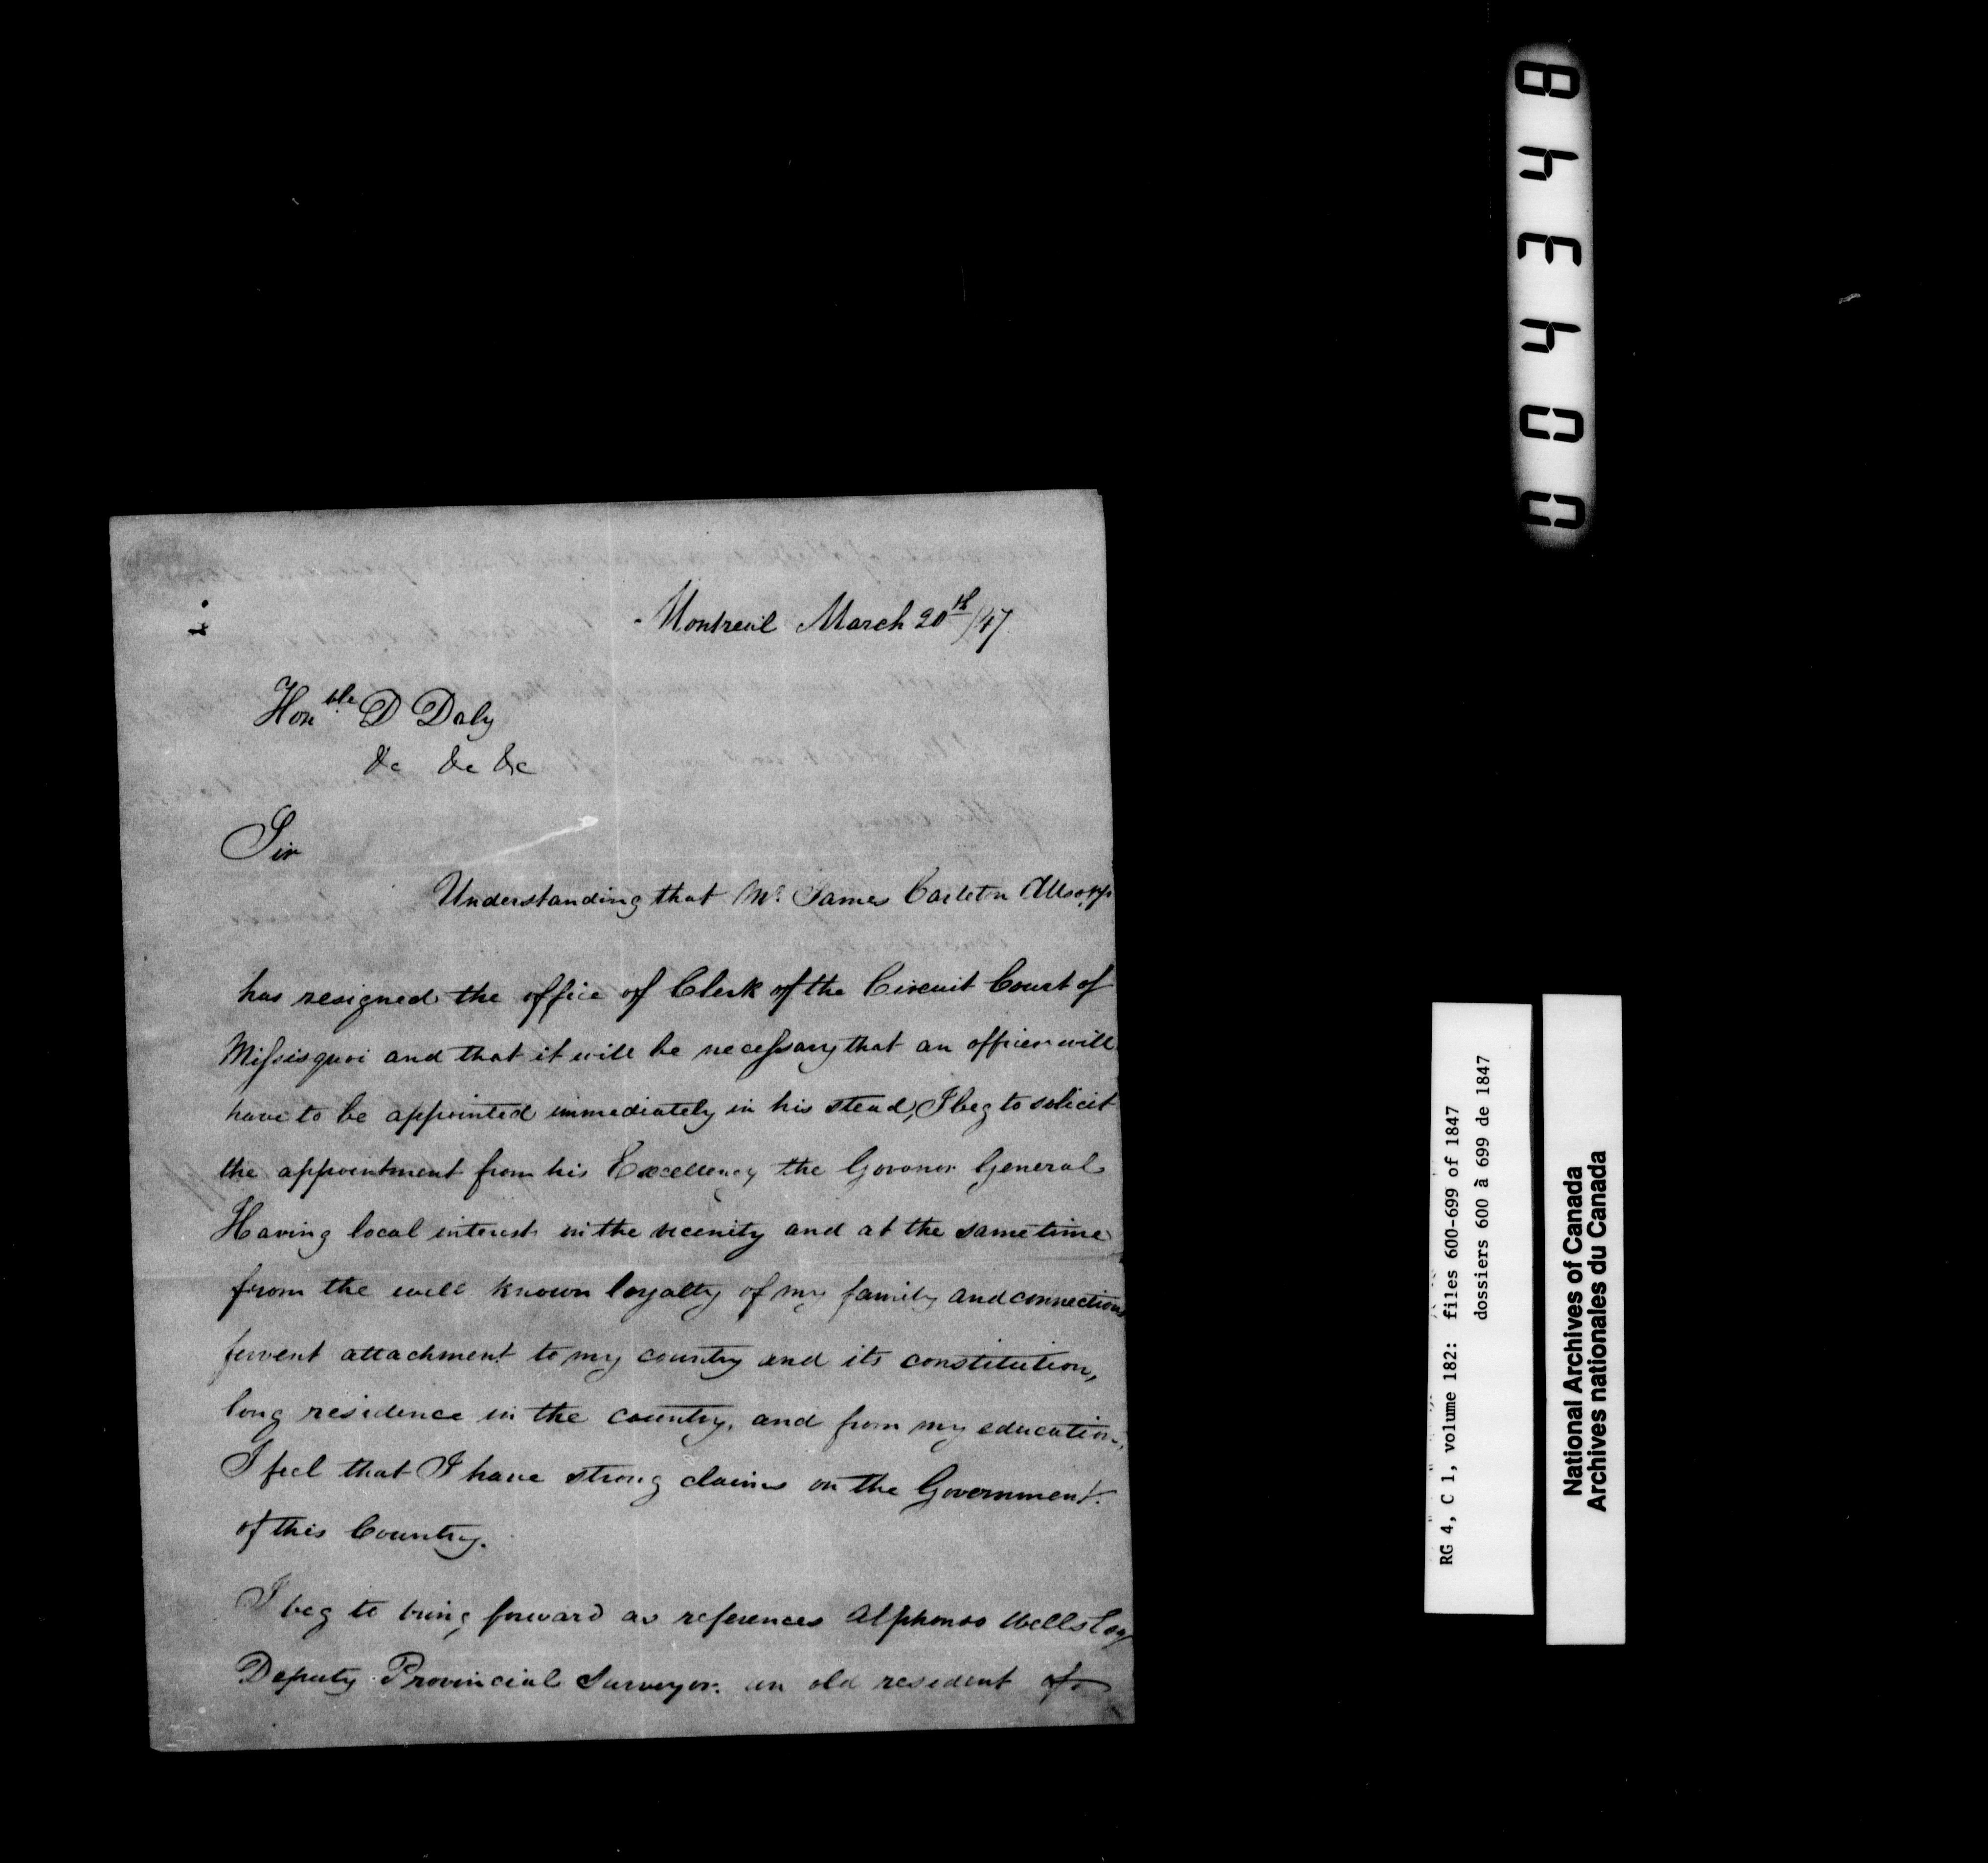 Montreal March 20th/47
Honble D Daly
&c &c &c
Sir
Understanding that Mr. James Carleton Allsopp
has resigned the office of Clerk of the Circuit Court of
Missisquoi and that it will be necessary that an officer will
have to be appointed immediately in his stead, I beg to solicit
the appointment from his Excellency the Govonor General
Having local interest in the vicenity and at the same time
from the well known loyalty of my family and connections
fervent attachment to my country and its constitution,
long residence in the country, and from my education,
I feel that I have strong claims on the Government
of this Country.
I beg to bring forward as references Alphonso Wells Esq
Deputy Provincial Surveyor. an old resident of
844400
RG 4, C 1, volume 182: files 600-699 of 1847
dossiers 600 à 699 de 1847
National Archives of Canada
Archives nationales du Canada